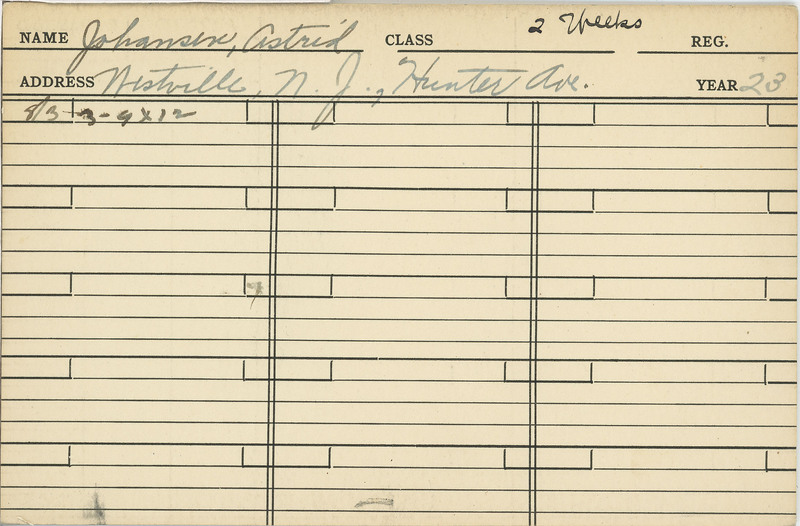 2 Weeks
NAME Johansen, Astrid CLASS REG.
ADDRESS Westville, N. J., Hunter Ave. YEAR 23
8/3 3-9x12